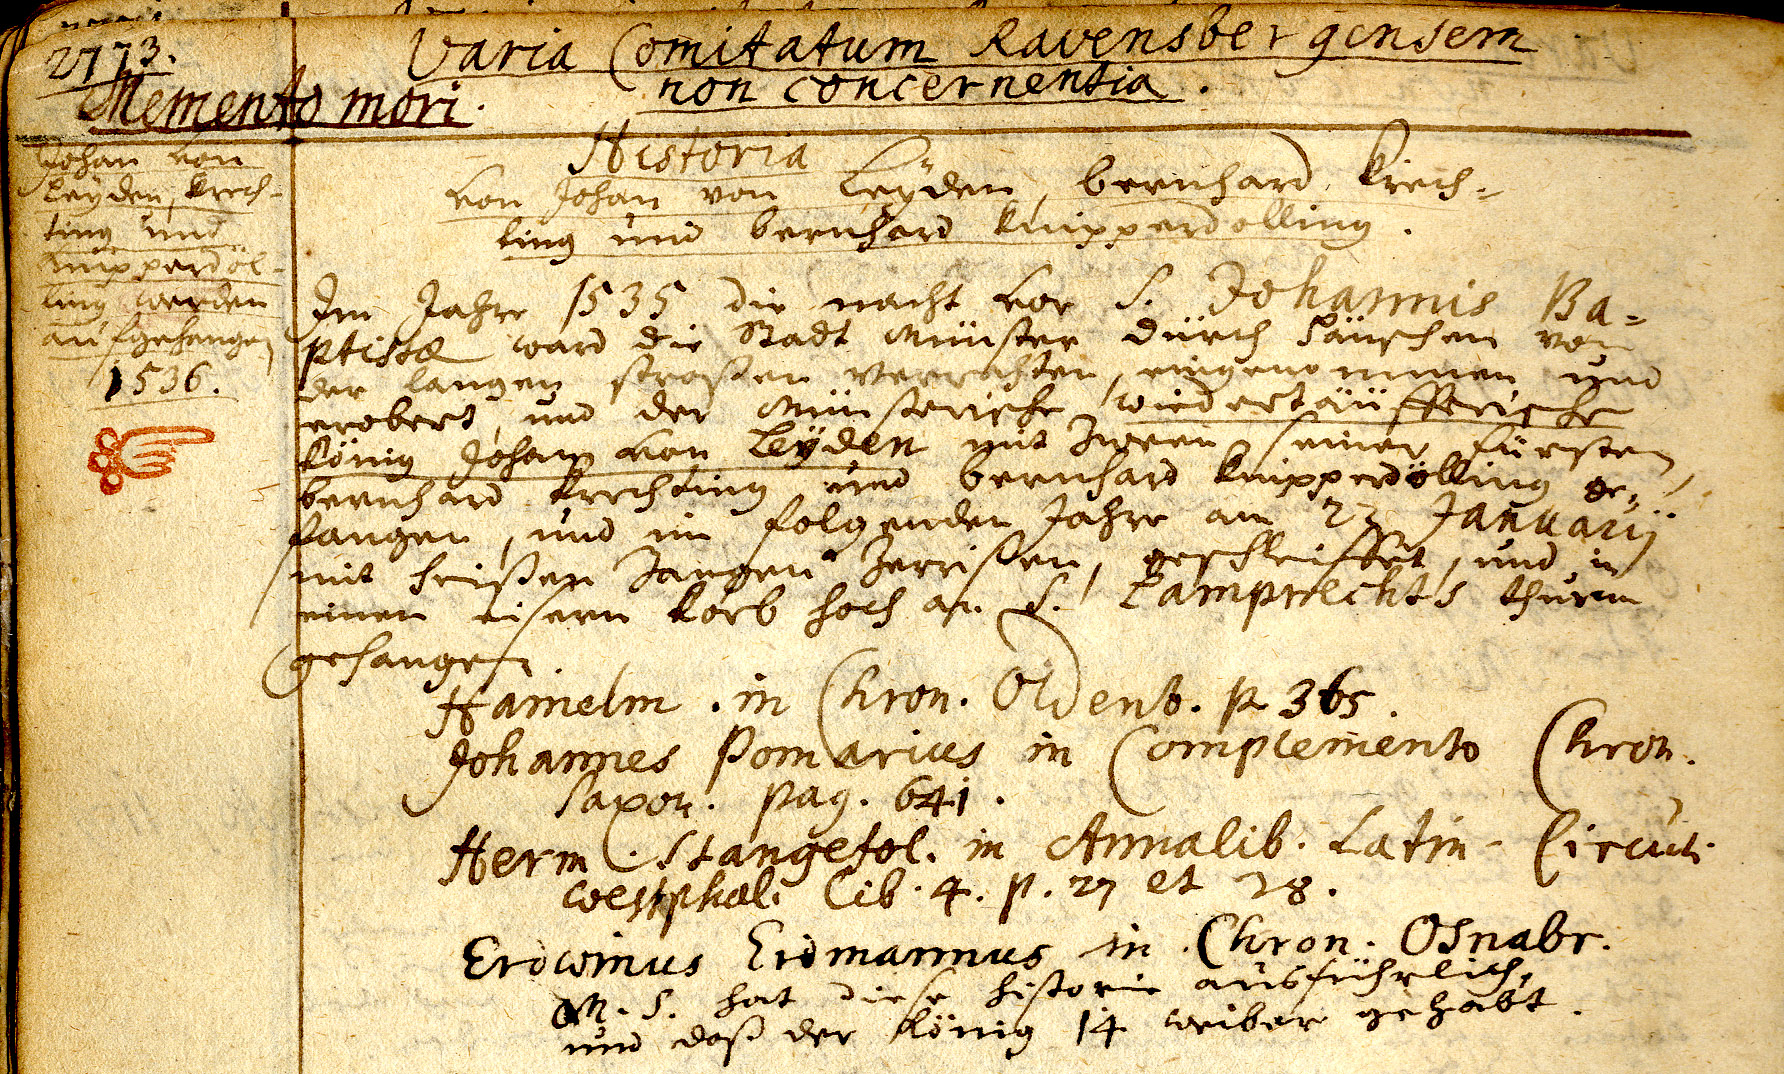 2773.
Varia Comitatum Ravensbergensem
non concernentia.
Memento mori.
Johan von
Leÿden, Krech-
ting und
Knipperdol-
ling werden
aufgehangen
1536.
Historia
von Johan von Leÿden, bernhard Krech-
ting und bernhard Knipperdolling.
Im Jahre 1535 die nacht vor S. Johannis Ba-
ptistæ ward die Stadt Münster durch Hänschen von
der langen straßen verrahten, eingenommen und
erobert, und der Münsterische wiedertäufferische
König Johan von Leÿden mit zween seiner Fürsten,
bernhard Krechting und bernhard Knipperdölling ge-
fangen, und im folgenden Jahre am 22 Januarij
mit heißen Zangen zerrißen, geschleiffet, und in
einen eisern Korb hoch an S. Lamprechts thurm
gehangen.
Hamelm. in Chron. Oldenb. p. 365.
Johannes Pomarius in Complemento Chron.
Saxon. pag. 641.
Herm. Stangefol. in Annalib. Latin. Circuli
westphal. lib. 4. p. 27 et 28.
Erdwinus Erdmannus in Chron. Osnabr.
M. S. hat diese historie ausführlich,
und daß der König 14 weiber gehabt.